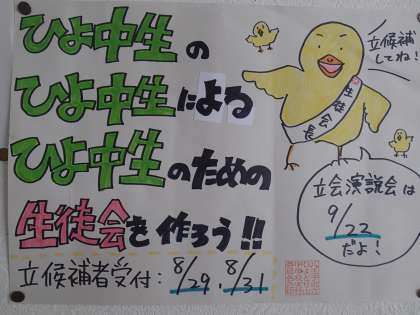 ひよ中生の
ひよ中生による
ひよ中生のための
生徒会を作ろう!!
立候補者受付: 8/29、8/31
立候補
してね!
生徒会長
立会演説会は
9/22
だよ!